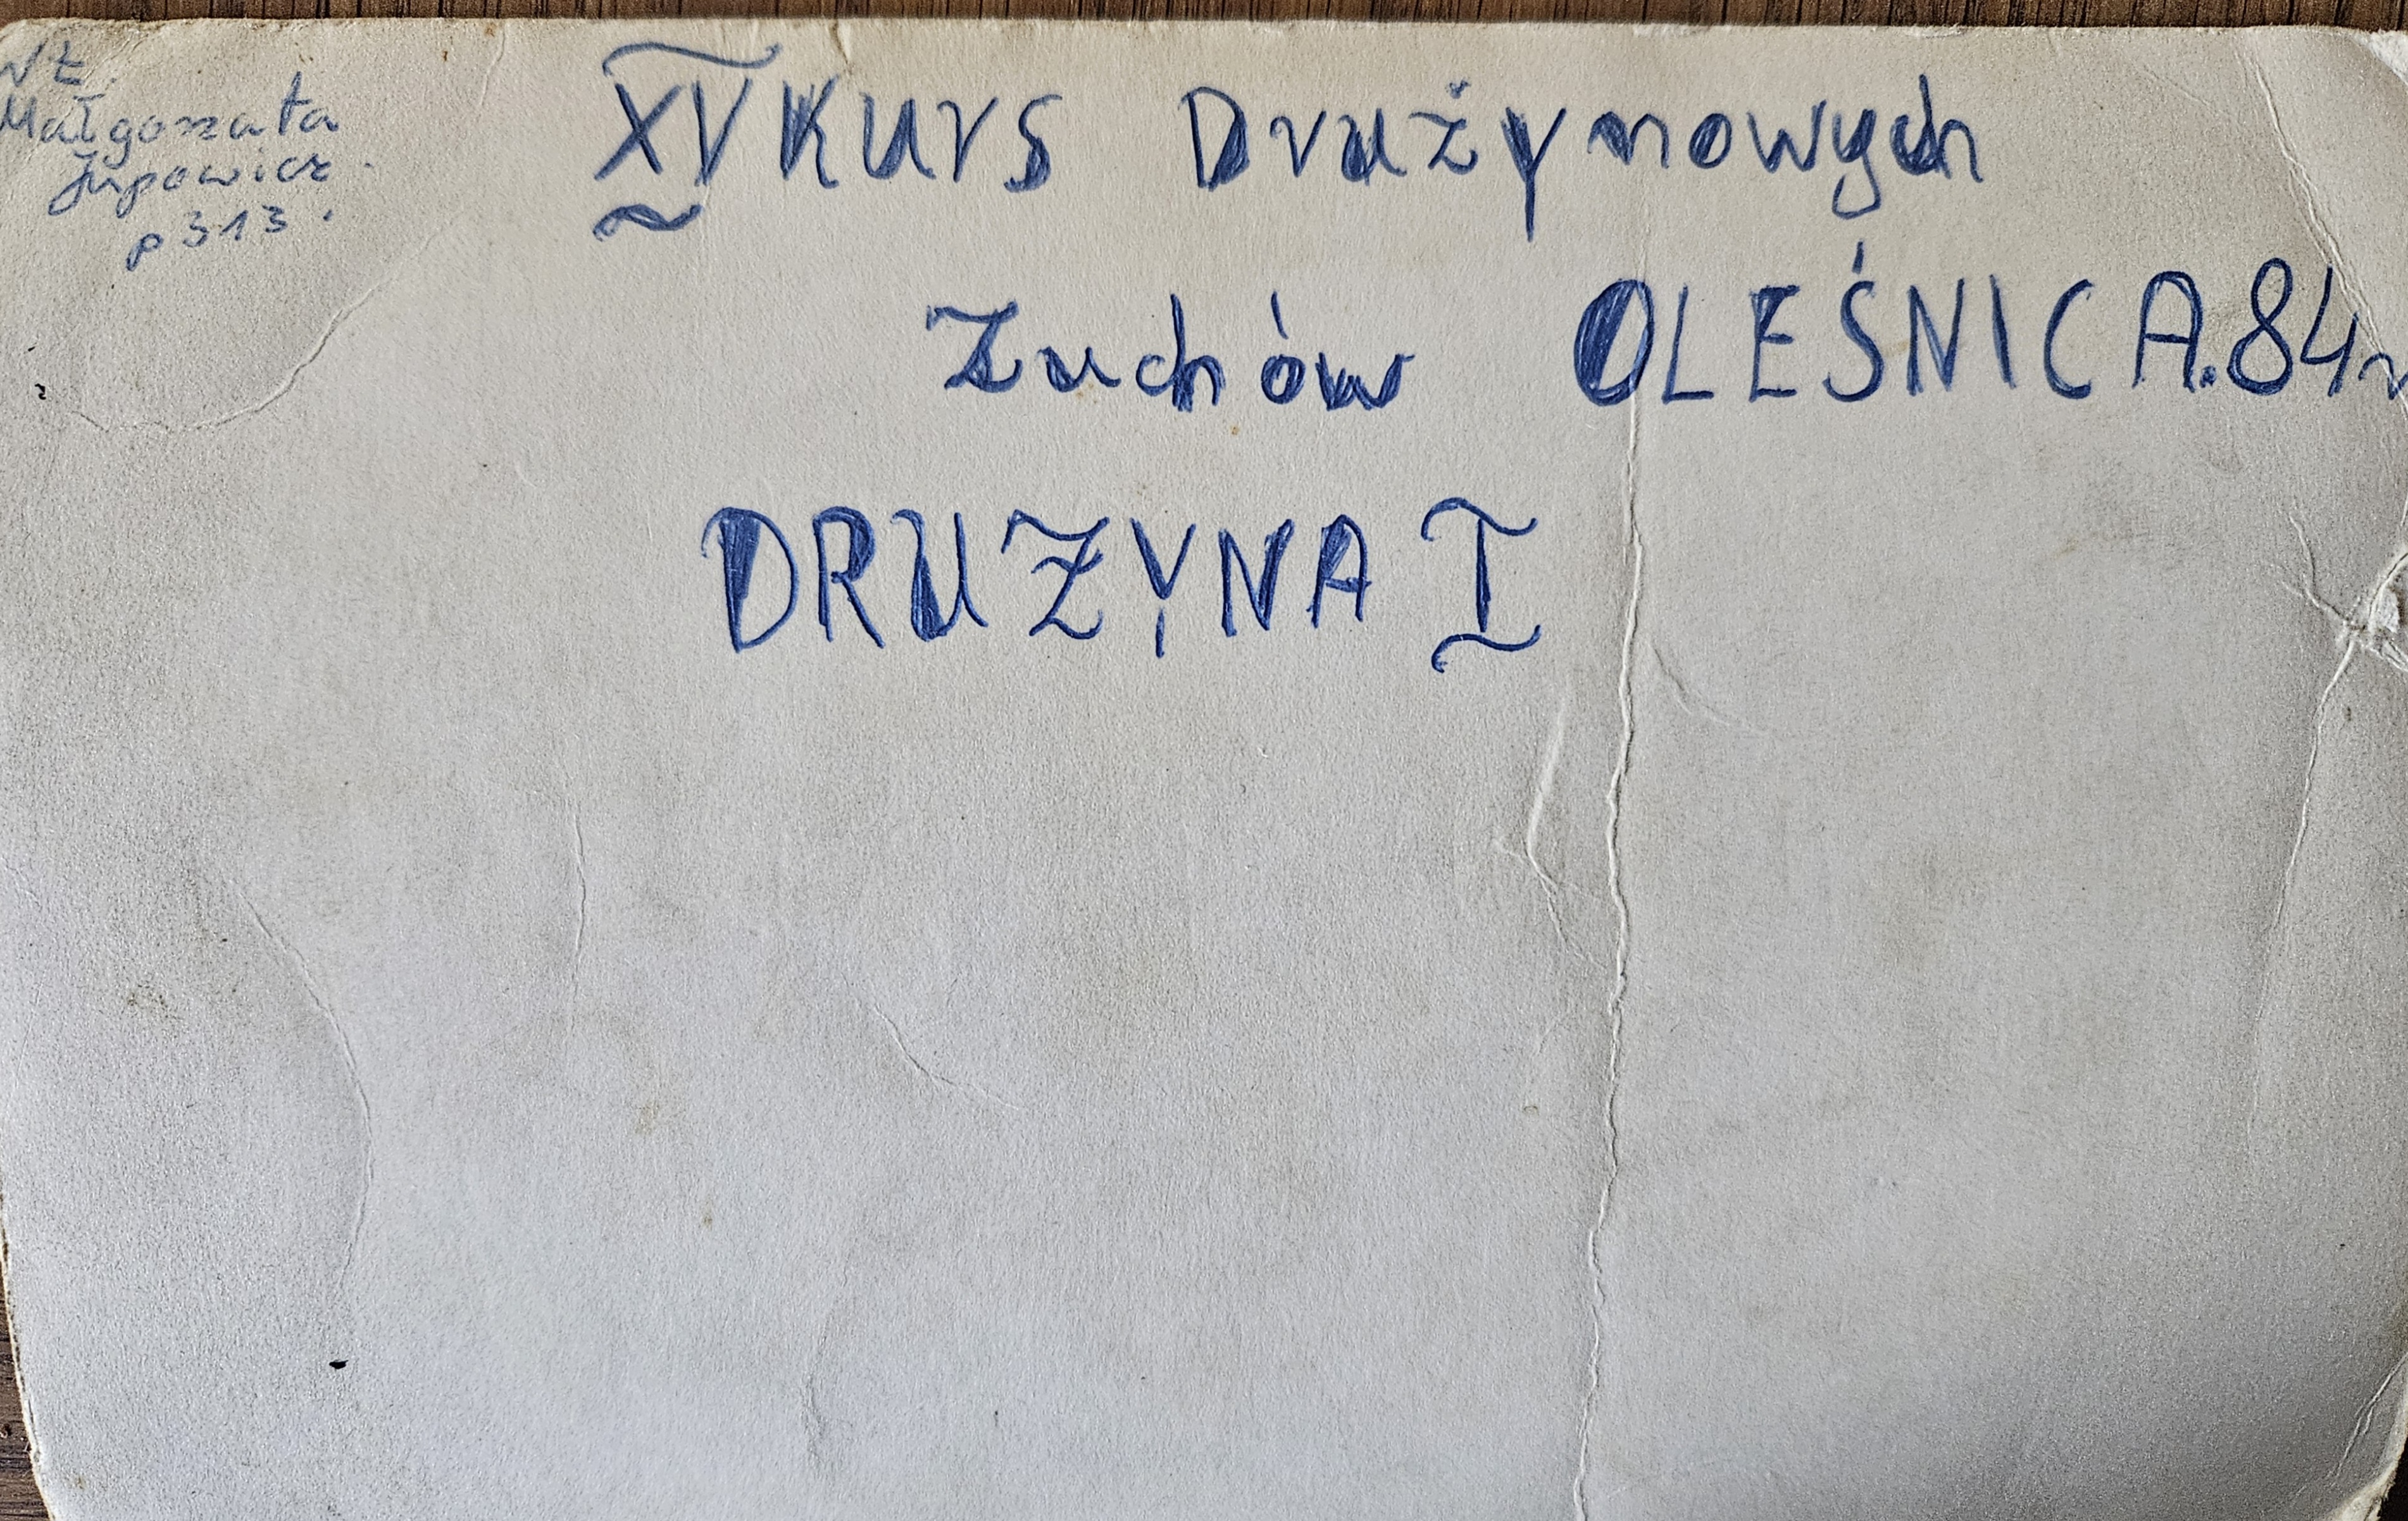 Wł.
Małgorzata
p 313.
XV Kurs Drużynowych
Zuchów OLEŚNICA.84r
DRUŻYNA I